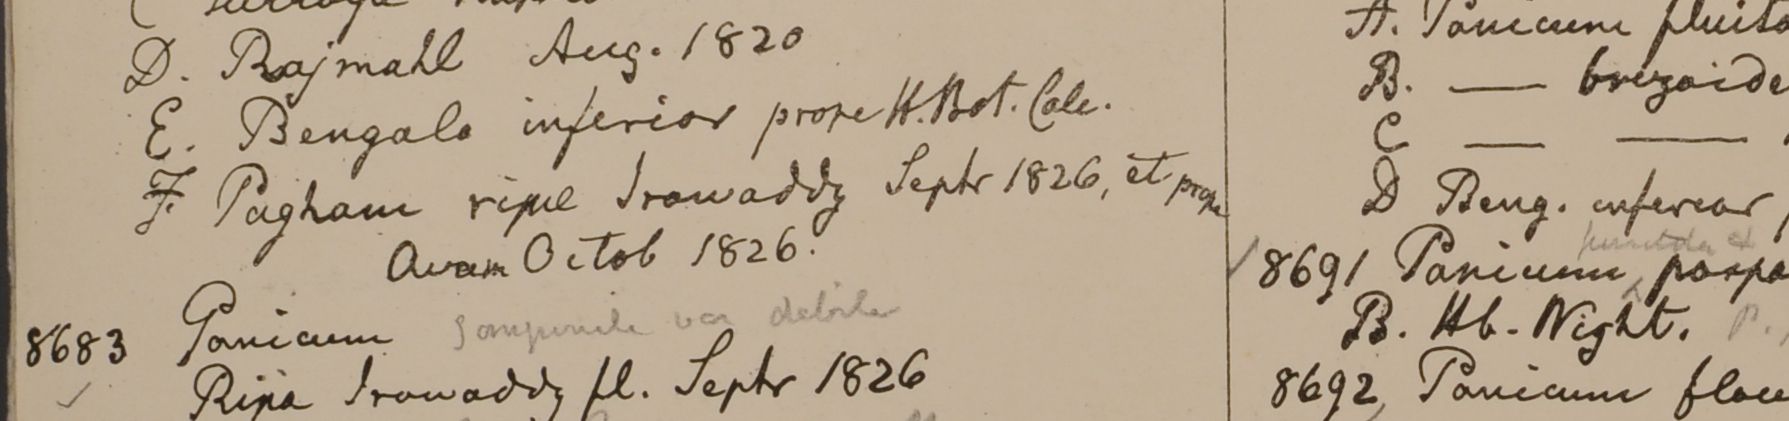 D. Rajmahl Aug. 1820
E. Bengala inferior prope H. Bot. Calc.
F. Pagham ripae Irawaddy Septr 1826, et prope
Avam Octob 1826.
8683 Panicum var debile
Ripa Irawaddy fl. Septr 1826
A. Panicum fluita
B. — brizoide
C — —
D Beng. inferior
8691 Panicum paspa
B. Hb. Wight.
8692 Panicum flav